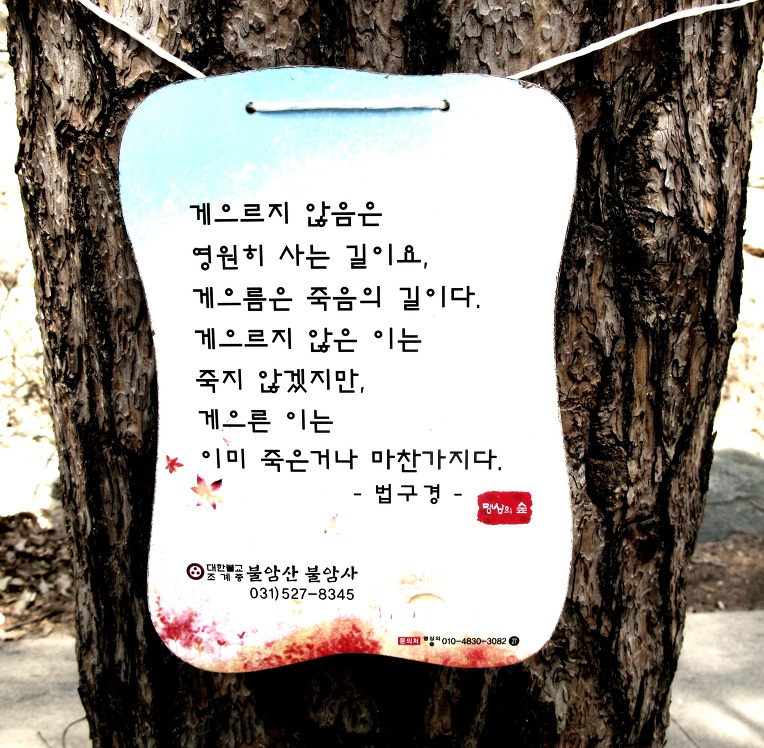 게으르지 않음은
영원히 사는 길이요,
게으름은 죽음의 길이다.
게으르지 않은 이는
죽지 않겠지만,
게으른 이는
이미 죽은거나 마찬가지다.
- 법구경 -
명상의 숲
대한불교
조계종 불암산 불암사
031)527-8345
문의처 명상의숲 010-4830-3082 27